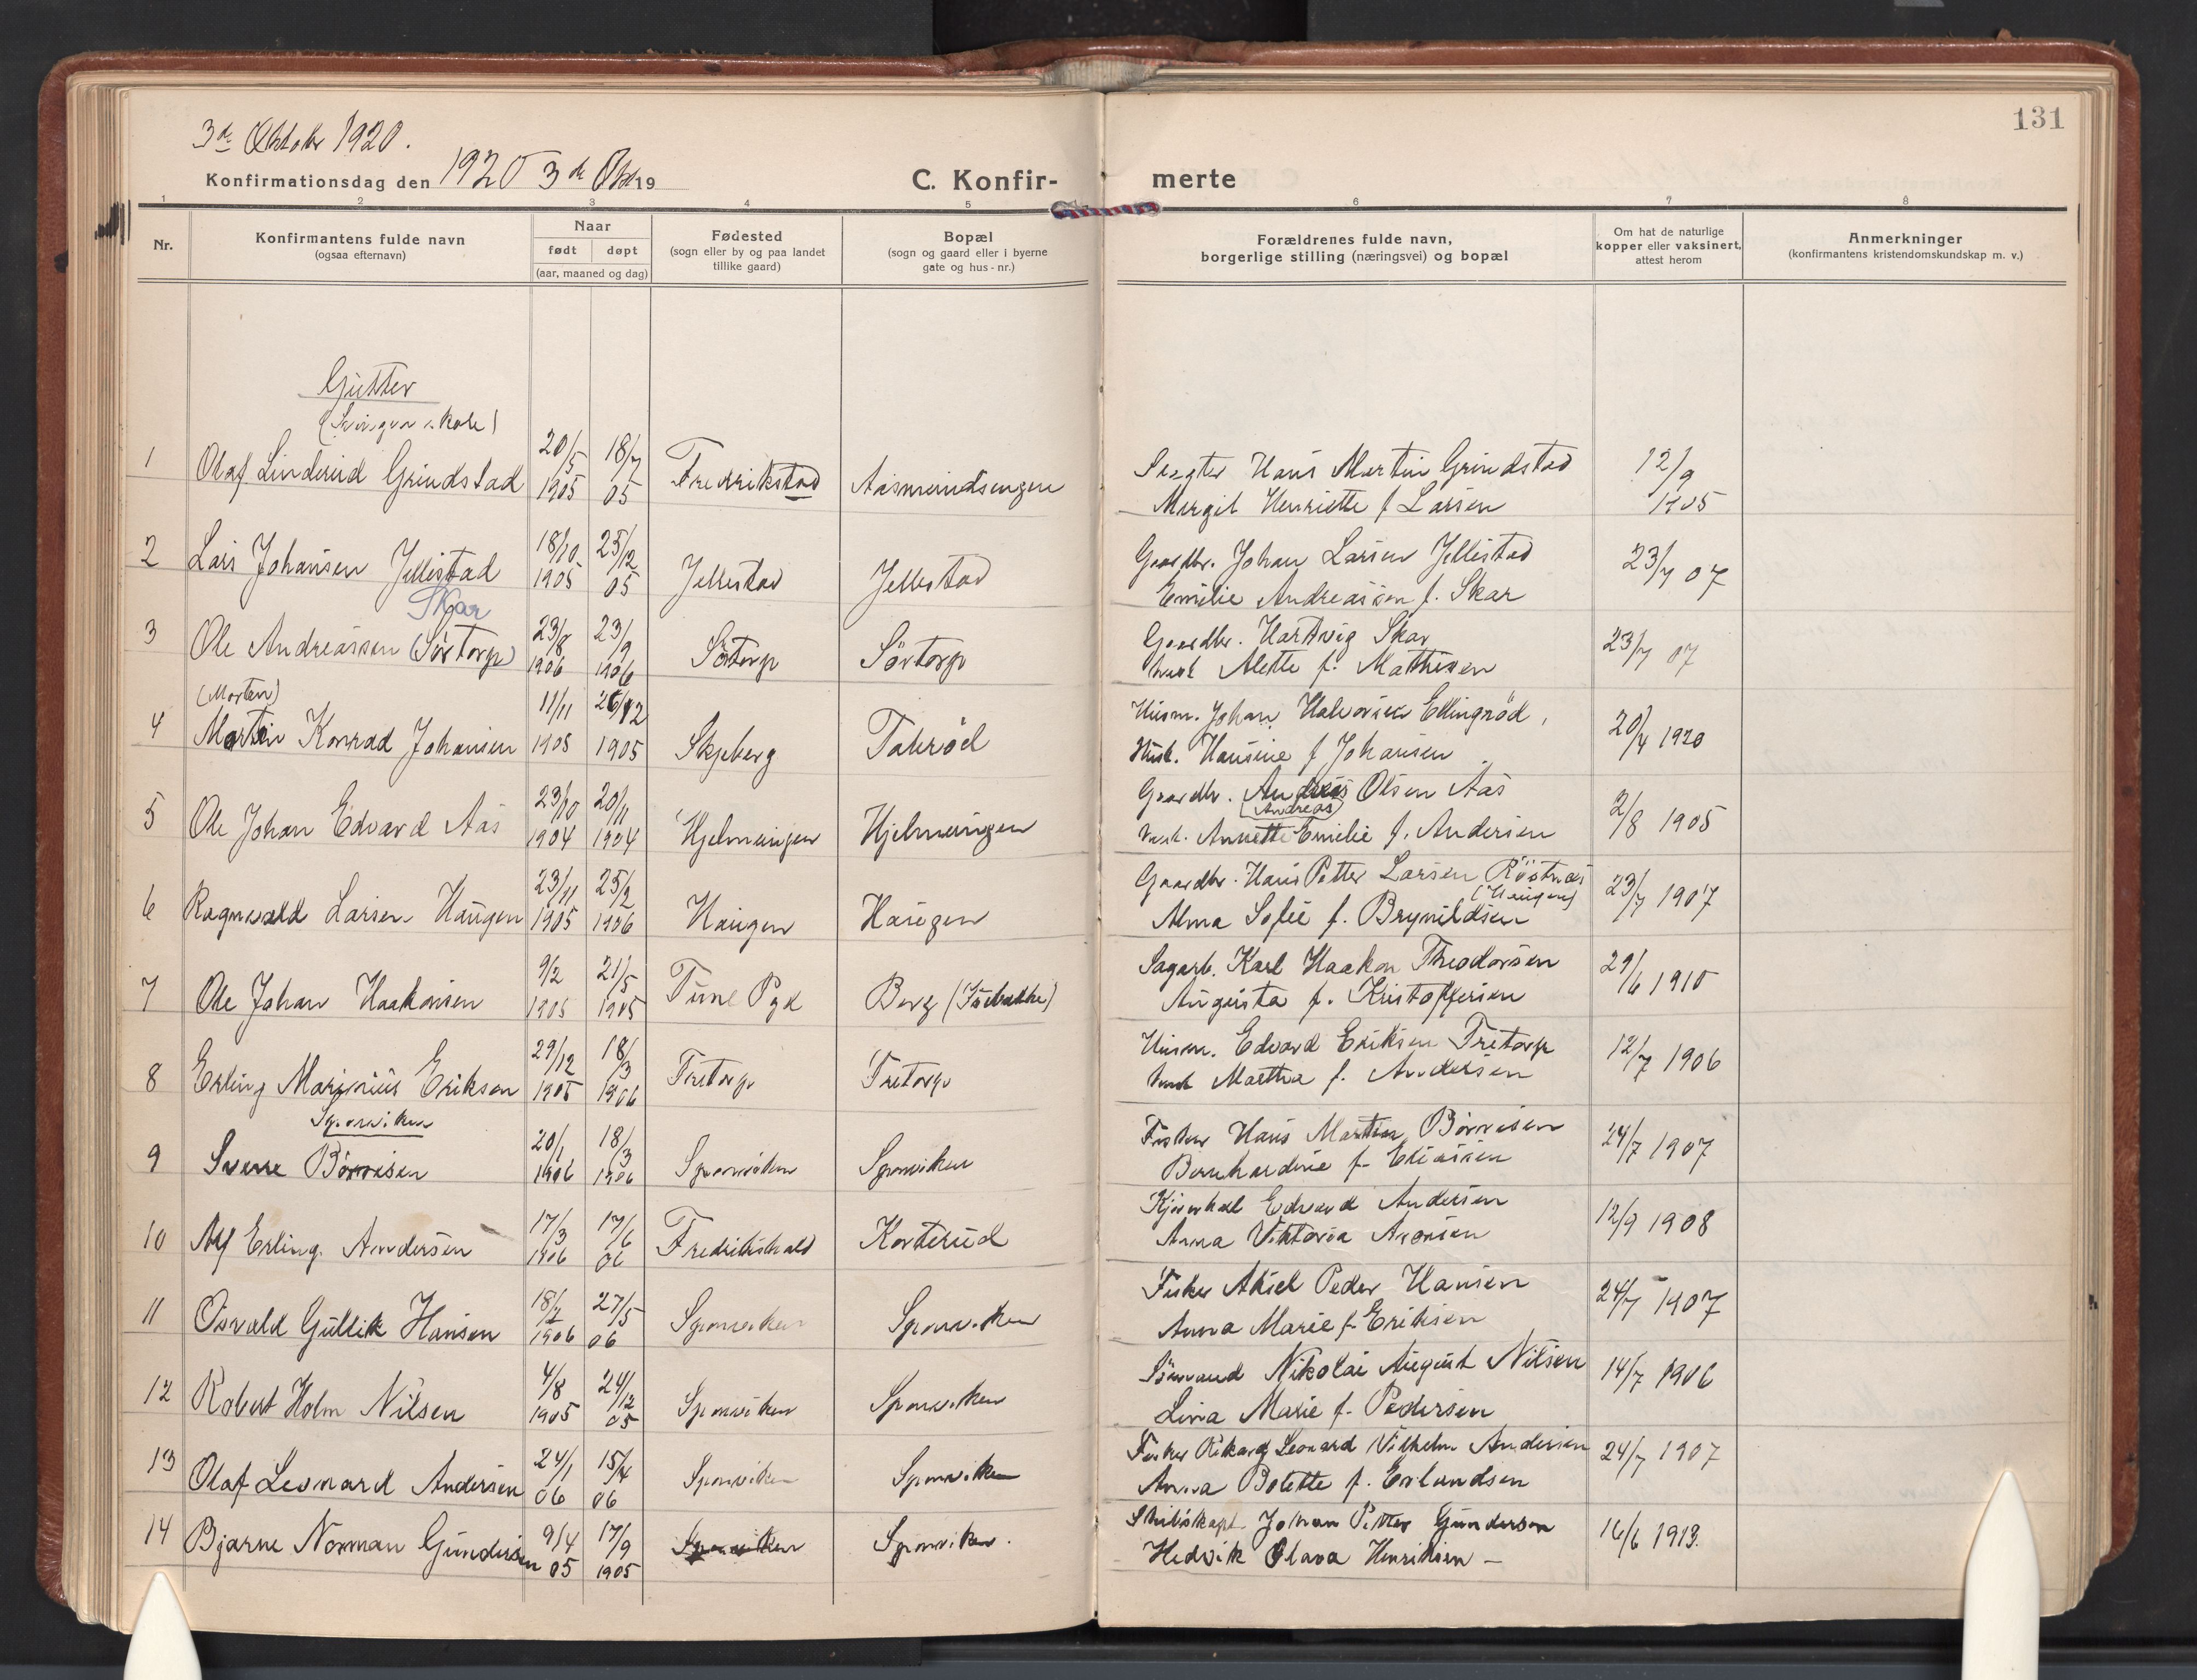 131
3de Oktober 1920.
Konfirmationsdag den 1920 3de Okt 19
C. Konfir- merte
1 2 3 4 5 6 7 8
Nr.
Konfirmantens fulde navn
(ogsaa efternavn)
Naar
født døpt
(aar, maaned og dag)
Fødested
(sogn eller by og paa landet
tillike gaard)
Bopæl
(sogn og gaard eller i byerne
gate og hus-nr.)
Forældrenes fulde navn,
borgerlige stilling (næringsvei) og bopæl
Om hat de naturlige
kopper eller vaksinert,
attest herom
Anmerkninger
(konfirmantens kristendomskundskap m. v.)
Gutter
skole)
1 Olaf Linderud Grindstad 20/5 1905 18/7 05 Fredrikstad Aasmundsengen Hans Martin Grindstad 12/9
Margit Henriette f Larsen 1905
2 Lars Johansen Jellestad 18/10 1905 25/12 05 Jellestad Jellestad Gaardbr. Johan Larsen Jellestad 23/7 07
Emilie Andreassen f. Skar
Skar
3 Ole Andreassen (Sörtorp) 23/8 1906 23/9 1906 Sötorp Sörtorp Gaardbr. Hartvig Skar 23/7 07
Alette f. Mathisen
(Morten)
4 Martin Konrad Johansen 11/11 1905 26/12 1905 Skjeberg Taberöd Husm. Johan Halvorsen Ellingröd, 20/4 1920
Hust. Hansine f Johansen
5 Ole Johan Edvard Aas 23/10 1904 20/11 1904 Hjelmungen Hjelmungen Gaardbr. Andreas Olsen Aas 2/8 1905
(Andreas)
Hust. Annette Emilie f. Andersen
6 Ragnvald Larsen Haugen 23/11 1905 25/2 1906 Haugen Haugen Gaardbr. Hans Petter Larsen Röstnes 23/7 1907
(Haugen)
Alma Sofie f. Brynildsen
7 Ole Johan Haakonsen 9/2 1905 21/5 1905 Tune Pgd Berg Sagarb. Karl Haakon Theodorsen 29/6 1910
Augusta f. Kristoffersen
8 Erling Marinius Eriksen 29/12 1905 18/3 1906 Tretorp Tretorp Husm. Edvard Eriksen Tretorp 12/7 1906
Hust Martha f. Andersen
Sponviken
9 Sverre Börresen 20/1 1906 18/3 1906 Sponviken Sponviken Fisker Hans Martin Börresen 24/7 1907
Bernhardine f. Eliassen
10 Alf Erling Andersen 17/3 1906 17/6 06 Fredrikshald Korterud Edvard Andersen 12/9 1908
Anna Viktoria Aronsen
11 Osvald Gullik Hansen 18/2 1906 27/5 06 Sponviken Sponviken Fisker Aksel Peder Hansen 24/7 1907
Anna Marie f. Eriksen
12 Robert Holm Nilsen 4/8 1905 24/12 05 Sponviken Sponviken Sömand Nikolai August Nilsen 14/7 1906
Lina Marie f. Pedersen
13 Olaf Leonard Andersen 24/1 06 15/4 06 Sponviken Sponviken Fisker Rikard Leonard Vilhelm Andersen 24/7 1907
Anna Bolette f. Erlandsen
14 Bjarne Norman Gundersen 9/4 05 17/9 1905 Sponviken Sponviken. Skibskapt. Johan Petter Gundersen 16/6 1913.
Hedvik Olava Henriksen –